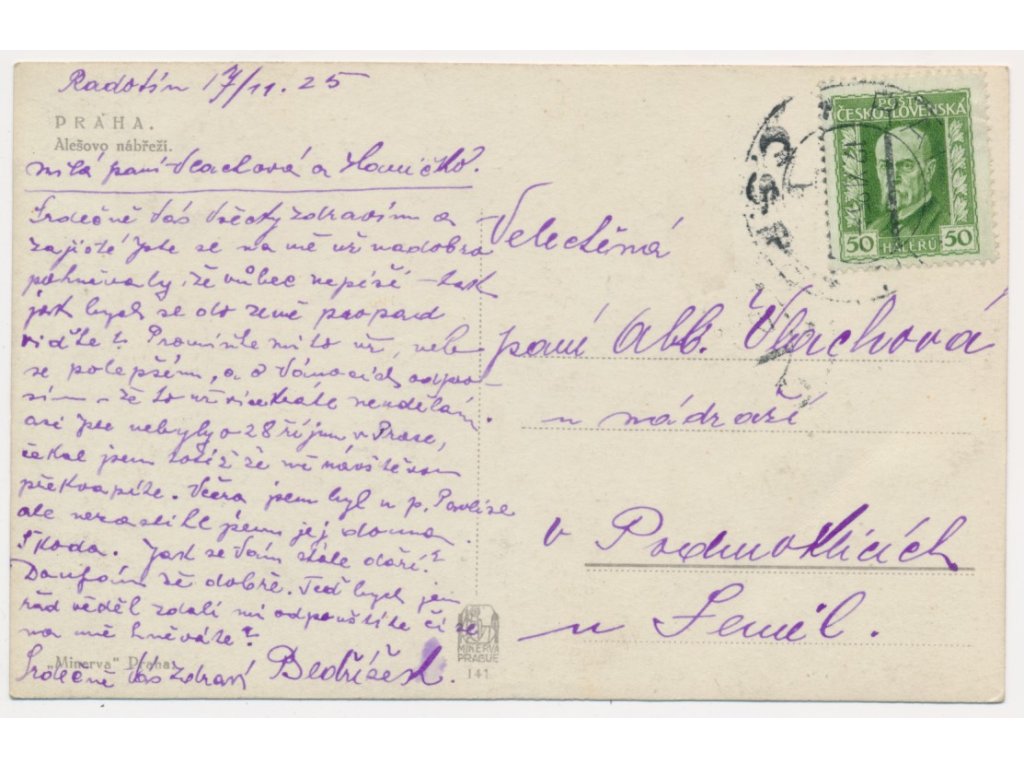 Radotín 17/11. 25
PRAHA.
Alešovo nábřeží.
milá paní Vlachová a Haničko!
Srdečně Vás všecky zdravím a
zajisté jste se na mě už nadobro
pohněvaly, že vůbec nepíší – tak
jak bych se do země propad
viďte? Promiňte mi to už, nebo
se polepším, a o Vánocích odpro-
sím – že to už vícekráte neudělám.
asi jste nebyly o 28 říjnu v Praze,
čekal jsem totiž že mě návštěvou
překvapíte. Včera jsem byl u p. Pavlise
ale nezastihl jsem jej doma.
Škoda. Jak se Vám stále daří?
Doufám že dobře. Teď bych jen
rád věděl zdali mi odpouštíte či se
na mě hněváte?
Srdečně Vás zdraví Bedříšek.
„Minerva" Praha.
MINERVA
PRAGUE
141
POSTA
ČESKOSLOVENSKÁ
50 HALÉŘŮ 50
ČSR
Velectěná
paní Abb. Vlachová
u nádraží
v Podmoklicích
u Semil.